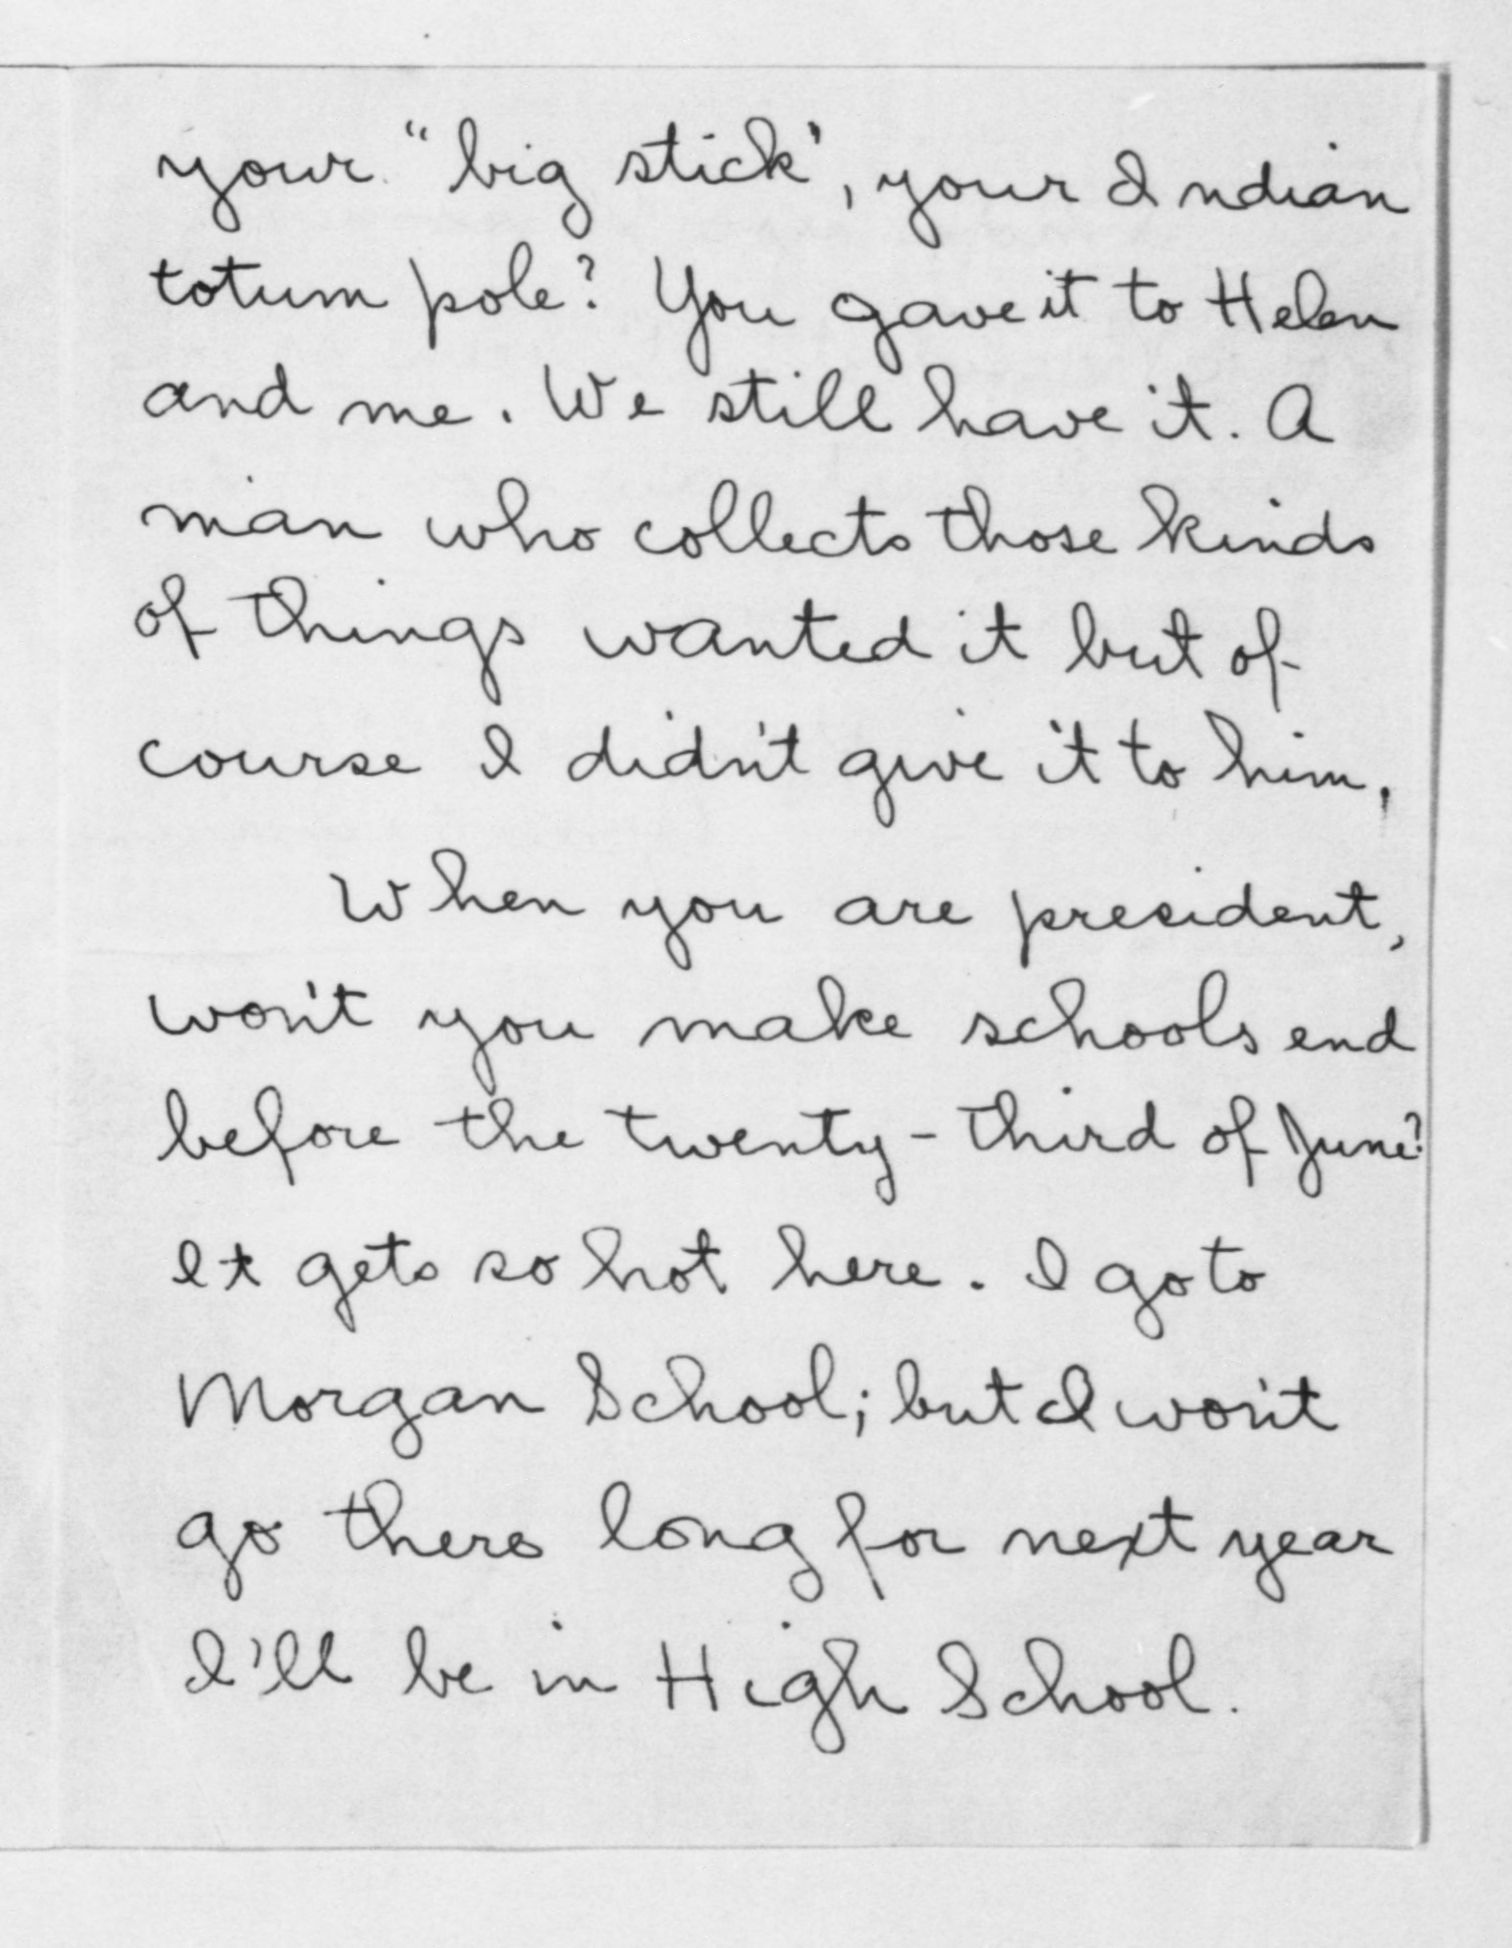 your "big stick", your Indian
totum pole? You gave it to Helen
and me. We still have it. A
man who collects those kinds
of things wanted it but of
course I didn't give it to him.
When you are president,
won't you make schools end
before the twenty-third of June?
It gets so hot here. I go to
Morgan School; but I won't
go there long for next year
I'll be in High School.